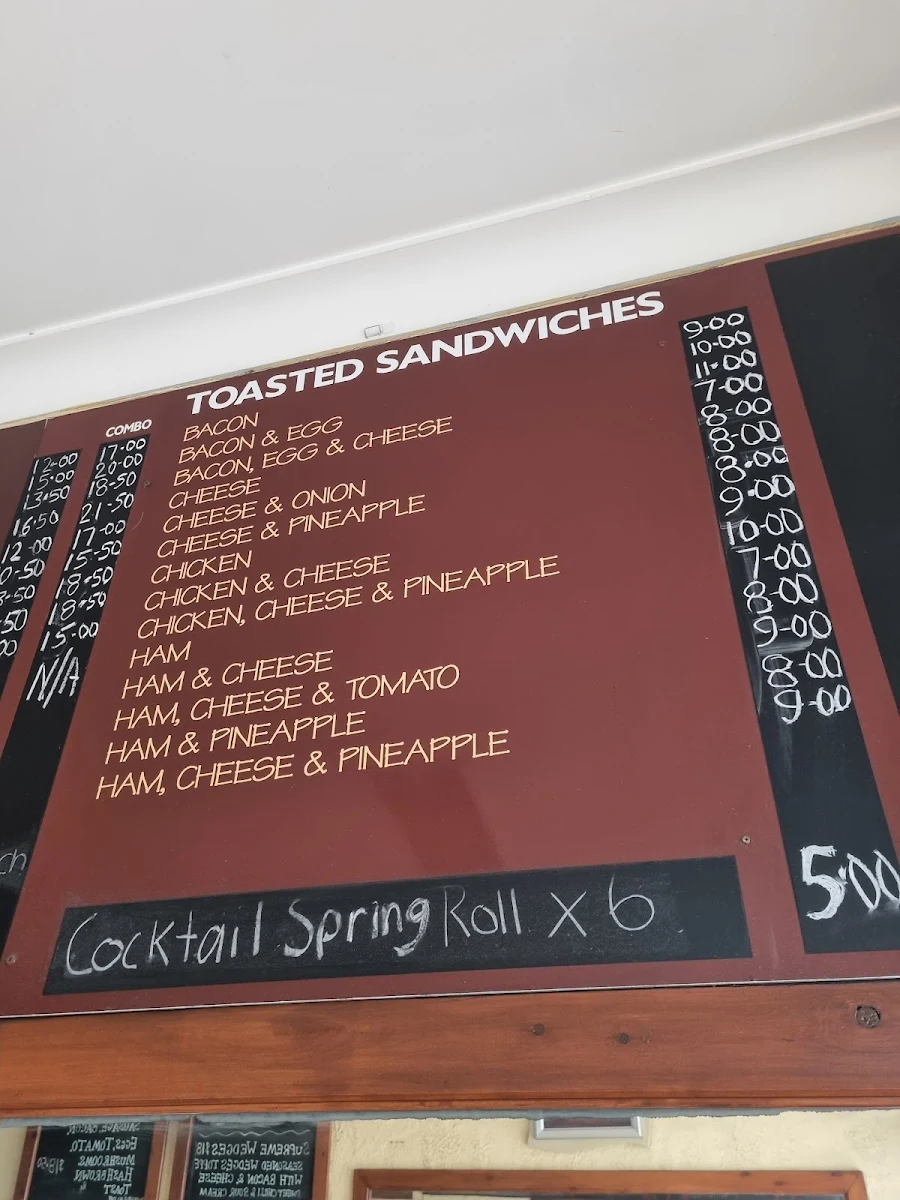 TOASTED SANDWICHES
BACON 9-00
BACON & EGG 10-00
BACON, EGG & CHEESE 11-00
CHEESE 7-00
CHEESE & ONION 8-00
CHEESE & PINEAPPLE 8-00
CHICKEN 8-00
CHICKEN & CHEESE 9-00
CHICKEN, CHEESE & PINEAPPLE 10-00
HAM 7-00
HAM & CHEESE 8-00
HAM, CHEESE & TOMATO 9-00
HAM & PINEAPPLE 8-00
HAM, CHEESE & PINEAPPLE 9-00
Cocktail Spring Roll x 6 5-00
COMBO
12-00 17-00
15-00 20-00
13-50 18-50
16-50 21-50
12-00 17-00
15-50
18-50
18-50
15-00
N/A
EGGS, TOMATO,
MUSHROOMS
HASHBROWN
TOAST
SUPREME WEDGES $18
SEASONED WEDGES
WITH BACON & CHEESE
& SOUR CREAM